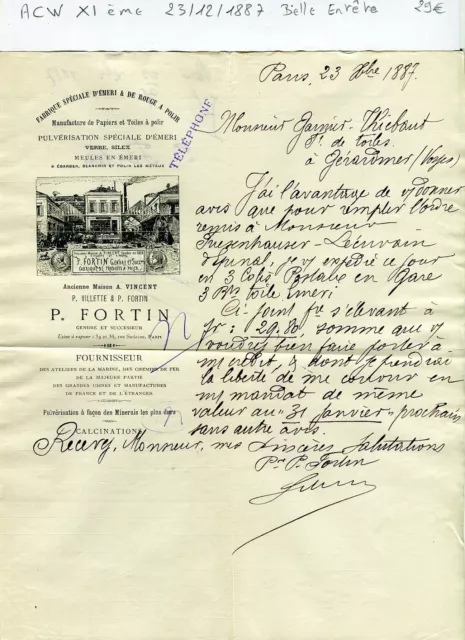 ACW XI ème 23/12/1887 Belle Entête 29€
FABRIQUE SPÉCIALE D'ÉMERI & DE ROUGE A POLIR
Manufacture de Papiers et Toiles à polir
PULVÉRISATION SPÉCIALE D'ÉMERI
VERRE, SILEX
MEULES EN ÉMERI
A ÉBARBER, BLANCHIR ET POLIR LES MÉTAUX
TÉLÉPHONE
P. FORTIN GENDRE ET SUCCr
Ancienne Maison A. VINCENT
P. VILLETTE & P. FORTIN
P. FORTIN
GENDRE ET SUCCESSEUR
PARIS
FOURNISSEUR
DES ATELIERS DE LA MARINE, DES CHEMINS DE FER
DE LA MAJEURE PARTIE
DES GRANDES USINES ET MANUFACTURES
DE FRANCE ET DE L'ÉTRANGER
Pulvérisation à façon des Minerais les plus durs
CALCINATIONS
Paris, 23 Xbre 1887.
Monsieur Garnier-Thiébaut
Ft de toiles
à Gérardmer (Vosges)
J'ai l'avantage de v/ donner
avis que pour remplir l'ordre
remis à Monsieur
d'Épinal, je v/ expédie ce jour
en 3 Colis en Gare
3 Toile Émeri
Ci joint ft s'élevant à
fr: 29.80 somme que v/
voudrez bien faire porter à
mon crédit, & dont je prendrai
la liberté de me couvrir en
un mandat de même
valeur au 31 janvier prochain
sans autre avis.
Recevez, Monsieur, mes Sincères Salutations
Pr P. Fortin